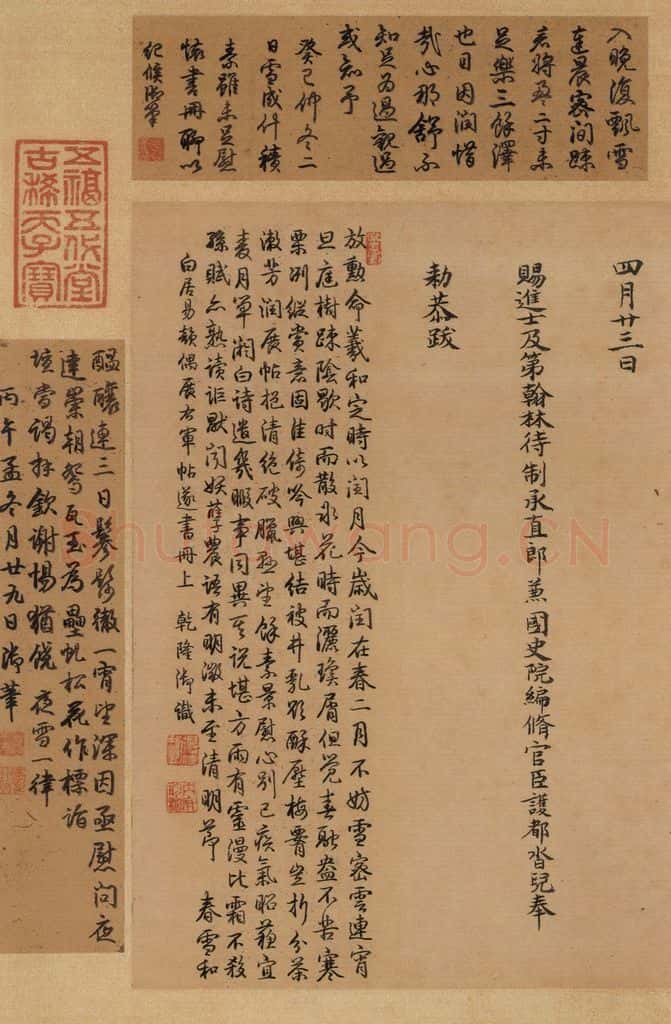 入晚復飄雪
達晨密間踈
將盈二寸未
足樂三餘澤
也目因潤惜
哉心那舒不
知足為過觀過
或知予
癸巳仲冬二
日雪成什積
素雖未足慰
懷書冊聊以
紀候御筆
五福五代堂
古稀天子寶
四月廿三日
賜進士及第翰林待制承直郎兼國史院編脩官臣護都沓兒奉
勑恭跋
放勳命羲和定時以閏月今歲閏在春二月不妨雪密雲連宵
旦庭樹踈陰歇時而散氷花時而灑瓊屑但覺春融盎不苦寒
栗冽縱賞意固佳倚吟興堪結被井乳形酥壓梅霽豈折分茶
漱芳潤展帖挹清絶破臘望餘素景慰心別已疾氣昭蘓宜
麦月單白詩遣幾暇事同異其說堪方兩有靈漫比霜不殺
孫賦亦熟讀詎默閔妖孽農語有明徵未至清明節 春雪和
白居易韻偶展右軍帖遂書冊上 乾隆御識
醖釀連三日鬖髿徹一宵望深因亟慰問夜
達崇朝鴛瓦玉為壘虬松花作標詣
壇當謁拜欽謝惕猶饒 夜雪一律
丙午孟冬月廿九日御筆
Shufawang.CN